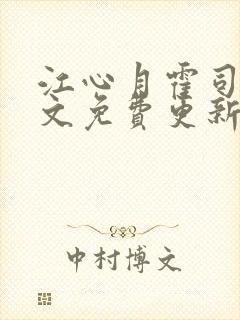 江心月霍司
文免费更新
中村博文